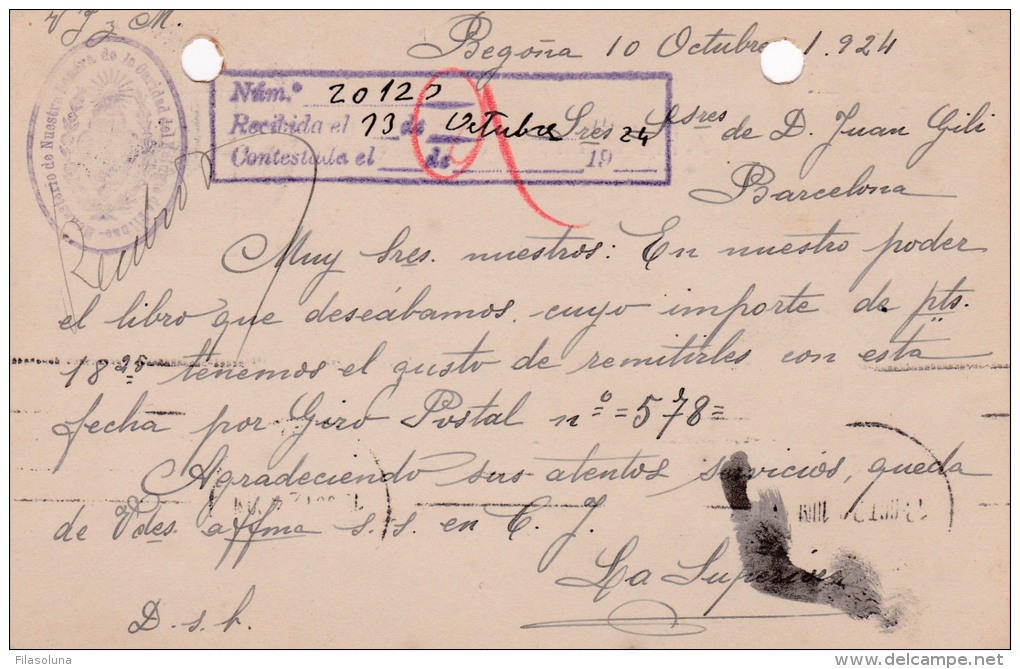 Begoña 10 Octubre 1.924
Núm.º 20120
Recibida el 13 de Octubre 24
Contestada el ___ de ______ 19___
Sres. Ssres de D. Juan Gili
Barcelona
Muy Sres. nuestros: En nuestro poder
el libro que deseábamos, cuyo importe de pts.
18'25 tenemos el gusto de remitirles con esta
fecha por Giro Postal nº=578=
Agradeciendo sus atentos servicios, queda
de Vdes. affma s.s. en C. J.
La Superiora
D. s. h.
Filasoluna
delcampe.net